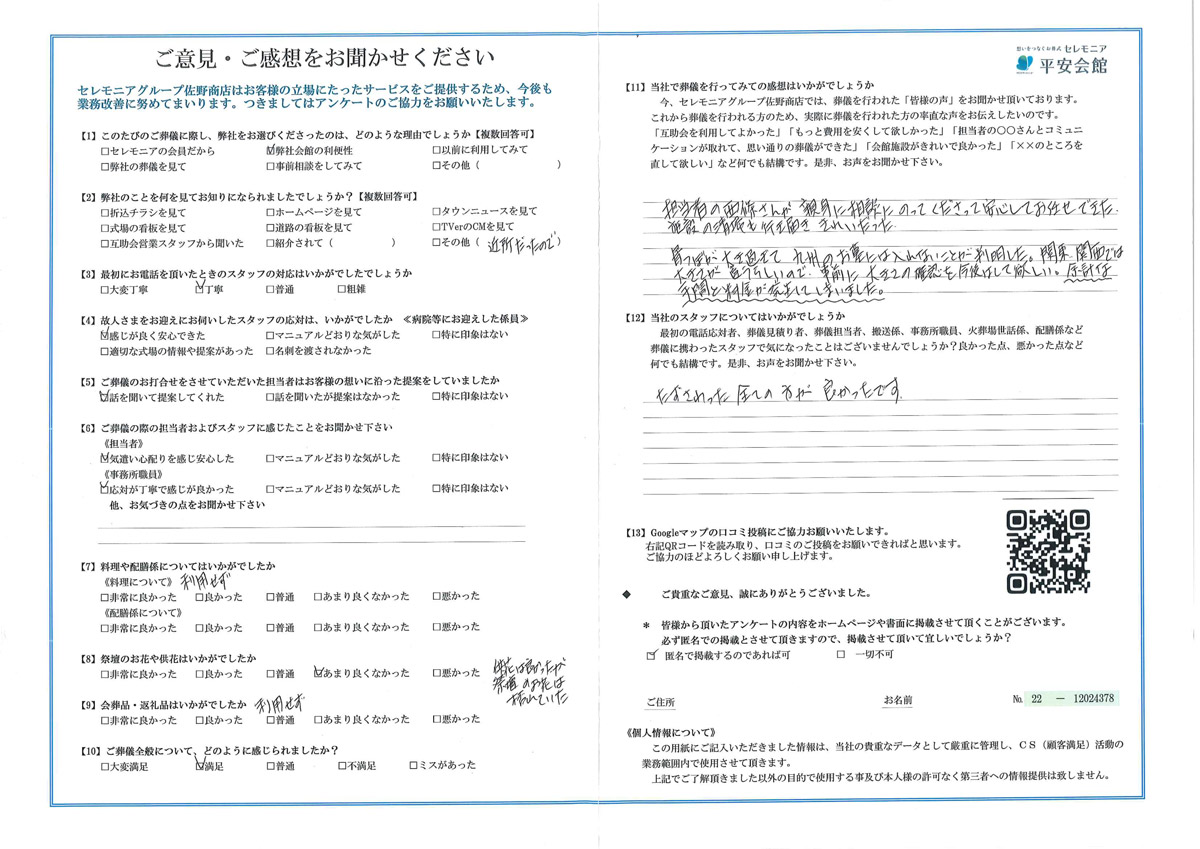 ご意見・ご感想をお聞かせください
セレモニアグループ佐野商店はお客様の立場にたったサービスをご提供するため、今後も
業務改善に努めてまいります。つきましてはアンケートのご協力をお願いいたします。
【1】このたびのご葬儀に際し、弊社をお選びくださったのは、どのような理由でしょうか【複数回答可】
□セレモニアの会員だから ☑弊社会館の利便性 □以前に利用してみて
□弊社の葬儀を見て □事前相談をしてみて □その他（ ）
【2】弊社のことを何を見てお知りになられましたでしょうか？【複数回答可】
□折込チラシを見て □ホームページを見て □タウンニュースを見て
□式場の看板を見て □道路の看板を見て □TVerのCMを見て
□互助会営業スタッフから聞いた □紹介されて（ ） □その他（ 近所だったので）
【3】最初にお電話を頂いたときのスタッフの対応はいかがでしたでしょうか
□大変丁寧 ☑丁寧 □普通 □粗雑
【4】故人さまをお迎えにお伺いしたスタッフの応対は、いかがでしたか ≪病院等にお迎えした係員≫
☑感じが良く安心できた □マニュアルどおりな気がした □特に印象はない
□適切な式場の情報や提案があった □名刺を渡されなかった
【5】ご葬儀のお打合せをさせていただいた担当者はお客様の想いに沿った提案をしていましたか
☑話を聞いて提案してくれた □話を聞いたが提案はなかった □特に印象はない
【6】ご葬儀の際の担当者およびスタッフに感じたことをお聞かせ下さい
《担当者》
☑気遣い心配りを感じ安心した □マニュアルどおりな気がした □特に印象はない
《事務所職員》
☑応対が丁寧で感じが良かった □マニュアルどおりな気がした □特に印象はない
他、お気づきの点をお聞かせ下さい
【7】料理や配膳係についてはいかがでしたか
《料理について》 利用せず
□非常に良かった □良かった □普通 □あまり良くなかった □悪かった
《配膳係について》
□非常に良かった □良かった □普通 □あまり良くなかった □悪かった
【8】祭壇のお花や供花はいかがでしたか
□非常に良かった □良かった □普通 ☑あまり良くなかった □悪かった
供花は良かったが
祭壇のお花は
枯れていた
【9】会葬品・返礼品はいかがでしたか 利用せず
□非常に良かった □良かった □普通 □あまり良くなかった □悪かった
【10】ご葬儀全般について、どのように感じられましたか？
□大変満足 ☑満足 □普通 □不満足 □ミスがあった
想いをつなぐお葬式 セレモニア
平安会館
【11】当社で葬儀を行ってみての感想はいかがでしょうか
今、セレモニアグループ佐野商店では、葬儀を行われた「皆様の声」をお聞かせ頂いております。
これから葬儀を行われる方のため、実際に葬儀を行われた方の率直な声をお伝えしたいのです。
「互助会を利用してよかった」「もっと費用を安くして欲しかった」「担当者の○○さんとコミュニ
ケーションが取れて、思い通りの葬儀ができた」「会館施設がきれいで良かった」「××のところを
直して欲しい」など何でも結構です。是非、お声をお聞かせ下さい。
担当者の西條さんが親身に相談にのってくださって安心してお任せできた。
施設の清掃も行き届ききれいだった
骨つぼが大き過ぎて九州のお墓には入れないことが判明した。関東、関西では
大きさが違うらしいので、事前に大きさの確認を今後はして欲しい。余計な
手間と料金が発生してしまいました。
【12】当社のスタッフについてはいかがでしょうか
最初の電話応対者、葬儀見積り者、葬儀担当者、搬送係、事務所職員、火葬場世話係、配膳係など
葬儀に携わったスタッフで気になったことはございませんでしょうか？良かった点、悪かった点など
何でも結構です。是非、お声をお聞かせ下さい。
たずさわった全ての方が良かったです。
【13】Googleマップの口コミ投稿にご協力お願いいたします。
右記QRコードを読み取り、口コミのご投稿をお願いできればと思います。
ご協力のほどよろしくお願い申し上げます。
◆ ご貴重なご意見、誠にありがとうございました。
＊ 皆様から頂いたアンケートの内容をホームページや書面に掲載させて頂くことがございます。
必ず匿名での掲載とさせて頂きますので、掲載させて頂いて宜しいでしょうか？
☑ 匿名で掲載するのであれば可 □ 一切不可
ご住所 お名前 №22 － 12024378
《個人情報について》
この用紙にご記入いただきました情報は、当社の貴重なデータとして厳重に管理し、CS（顧客満足）活動の
業務範囲内で使用させて頂きます。
上記でご了解頂きました以外の目的で使用する事及び本人様の許可なく第三者への情報提供は致しません。